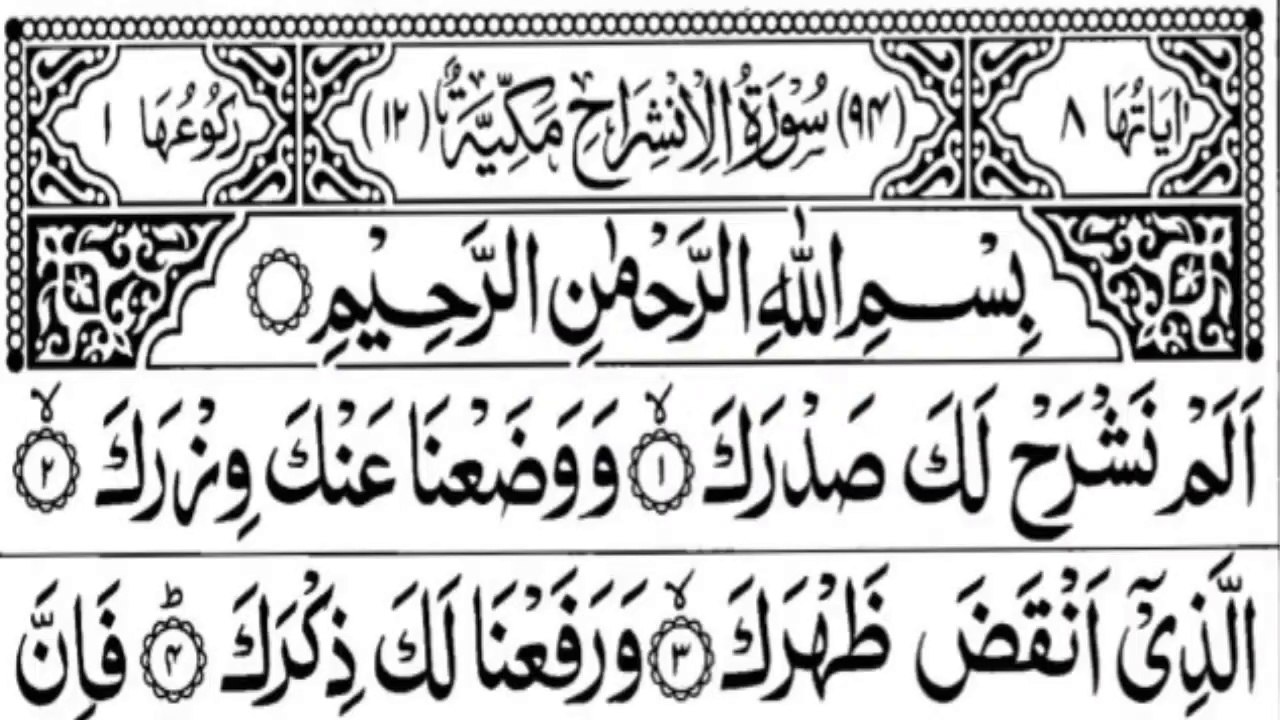 اٰيَاتُهَا ٨ (٩۴) سُوْرَةُ الْاِنْشِرَاحِ مَكِّيَّةٌ (١٢) رُكُوْعُهَا ١
بِسْمِ اللّٰهِ الرَّحْمٰنِ الرَّحِيْمِ
اَلَمْ نَشْرَحْ لَكَ صَدْرَكَ ۙ﴿١﴾ وَوَضَعْنَا عَنْكَ وِزْرَكَ ۙ﴿٢﴾
الَّذِىْٓ اَنْقَضَ ظَهْرَكَ ۙ﴿٣﴾ وَرَفَعْنَا لَكَ ذِكْرَكَ ؕ﴿۴﴾ فَاِنَّ